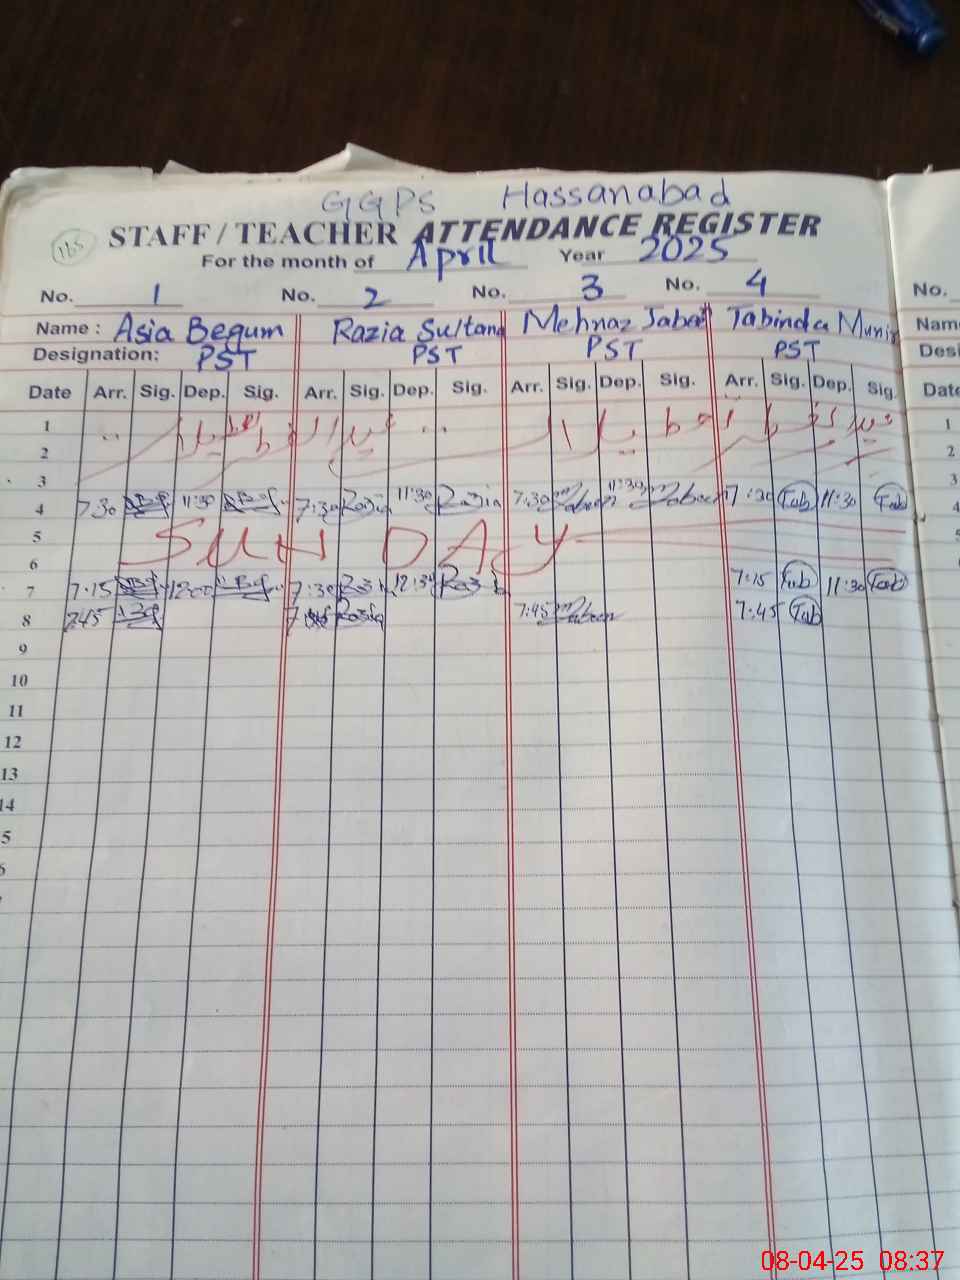 GGPS Hassanabad
165
STAFF / TEACHER ATTENDANCE REGISTER
For the month of April Year 2025
No. 1 No. 2 No. 3 No. 4 No.
Name : Asia Begum Razia Sultana Mehnaz Jabeen Tabinda Munir Nam
Designation: PST PST PST PST Desi
Date Arr. Sig. Dep. Sig. Arr. Sig. Dep. Sig. Arr. Sig. Dep. Sig. Arr. Sig. Dep. Sig. Date
1 1
2 2
3 3
4 7:30 11:30 7:30 Razia 11:30 Razia 7:30 Jabeen 11:30 Jabeen 7:30 Tab 11:30 Tab 4
5 SUNDAY
6
7 7:15 12:00 7:30 12:30 7:15 Tab 11:30 Tab
8 7:45 Razia 7:45 Jabeen 7:45 Tab
9
10
11
12
13
14
5
6
08-04-25 08:37